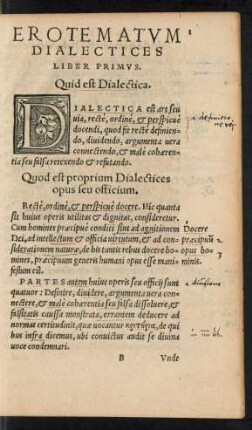 EROTEMATVM
DIALECTICES
LIBER PRIMVS.
Quid est Dialectica.
DIALECTICA est ars seu
uia, rectè, ordinè, & perspicuè
docendi, quod fit rectè definien-
do, diuidendo, argumenta uera
connectendo, & malè cohæren-
tia seu falsa retexendo & refutando.
Quod est proprium Dialectices
opus seu officium.
Rectè, ordinè, & perspicuè docere. Hic quanta
sit huius operis utilitas & dignitas, consideretur.
Cum homines præcipuè conditi sint ad agnitionem
Dei, ad intellectum & officia uirtutum, & ad con-
siderationem naturæ, de his tantis rebus docere ho-
mines, præcipuum generis humani opus esse mani-
festum est.
Docere
præcipuū
opus ho-
minis.
PARTES autem huius operis seu officij sunt
quatuor: Definire, diuidere, argumenta uera con-
nectere, & malè cohærentia seu falsa dissoluere, &
falsitatis caussa monstrata, errantem deducere ad
normas certitudinis, quæ uocantur κριτήρια, de qui
bus infra dicemus, ubi conuictus audit se diuina
uoce condemnari.
B
Vnde